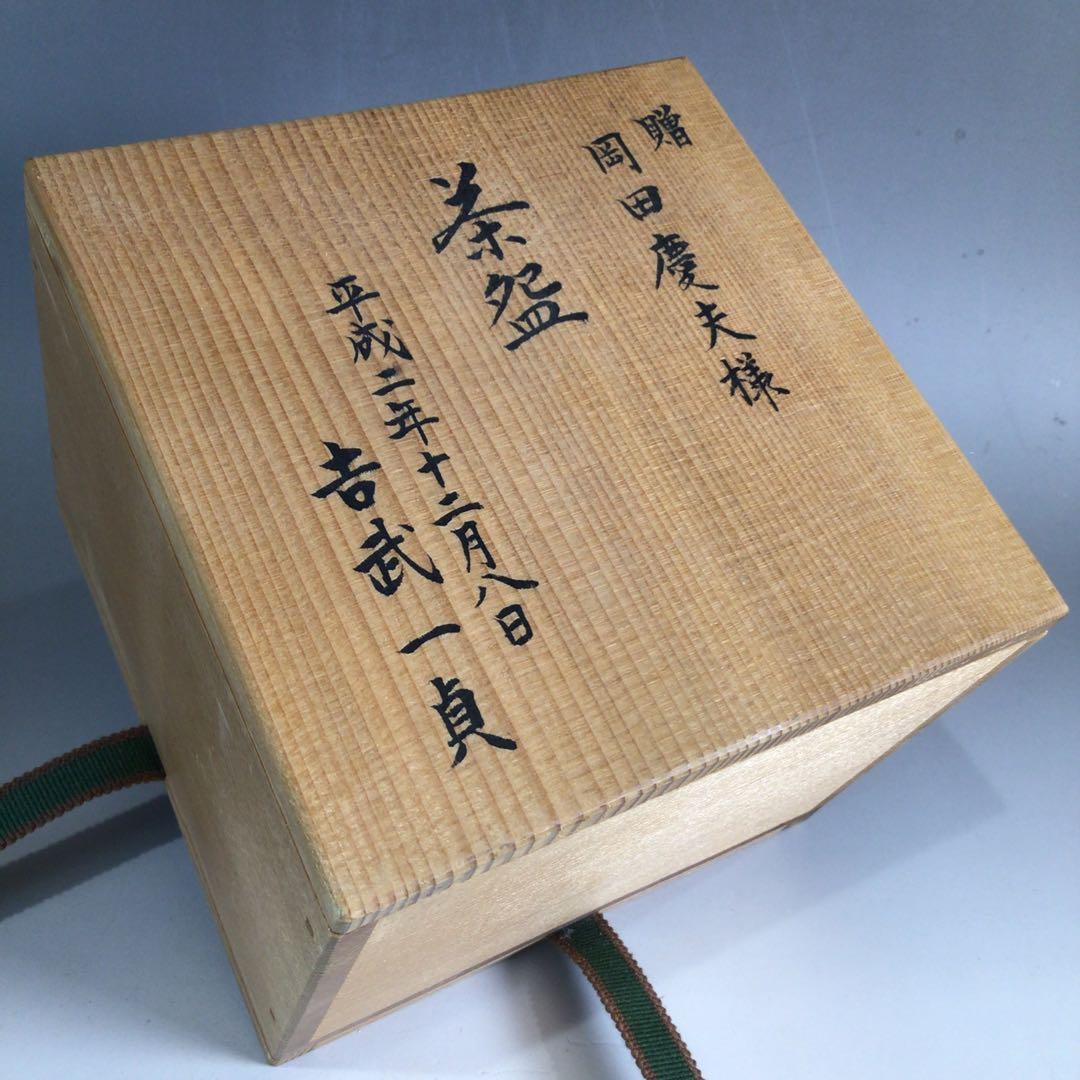 贈
岡田慶夫様
茶盌
平成二年十二月八日
吉武一貞